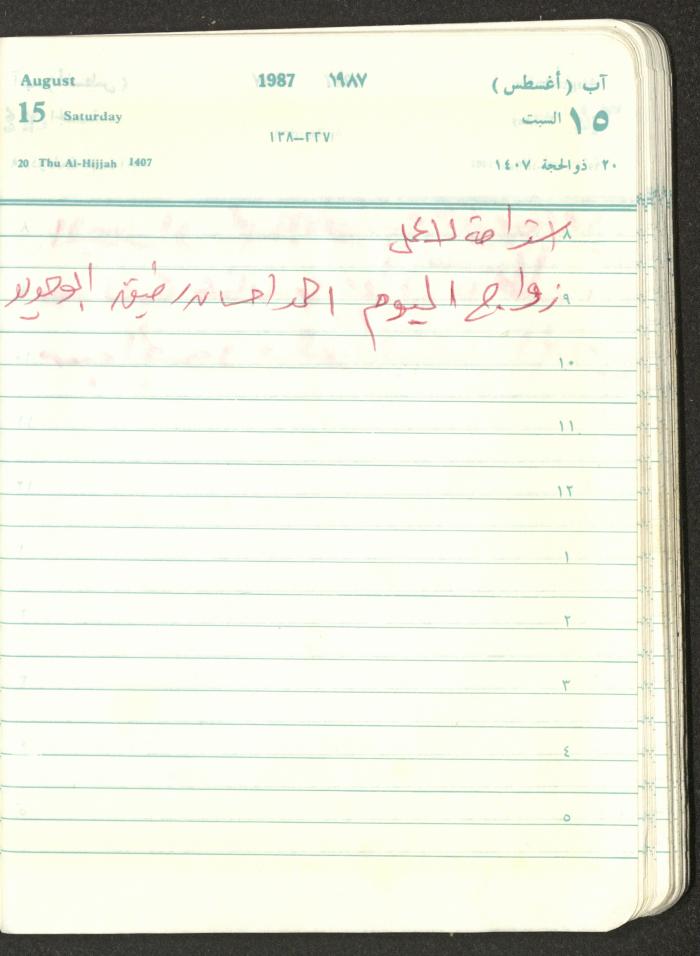 August 1987 ١٩٨٧ آب (أغسطس)
15 Saturday ١٥ السبت
٢٢٧–١٣٨
20 Thu Al-Hijjah 1407 ٢٠ ذو الحجة ١٤٠٧
٨ استراحة لا عمل
٩ زواج اليوم احمد احسان رضيف ابو حديد
١٠
١١
١٢
١
٢
٣
٤
٥